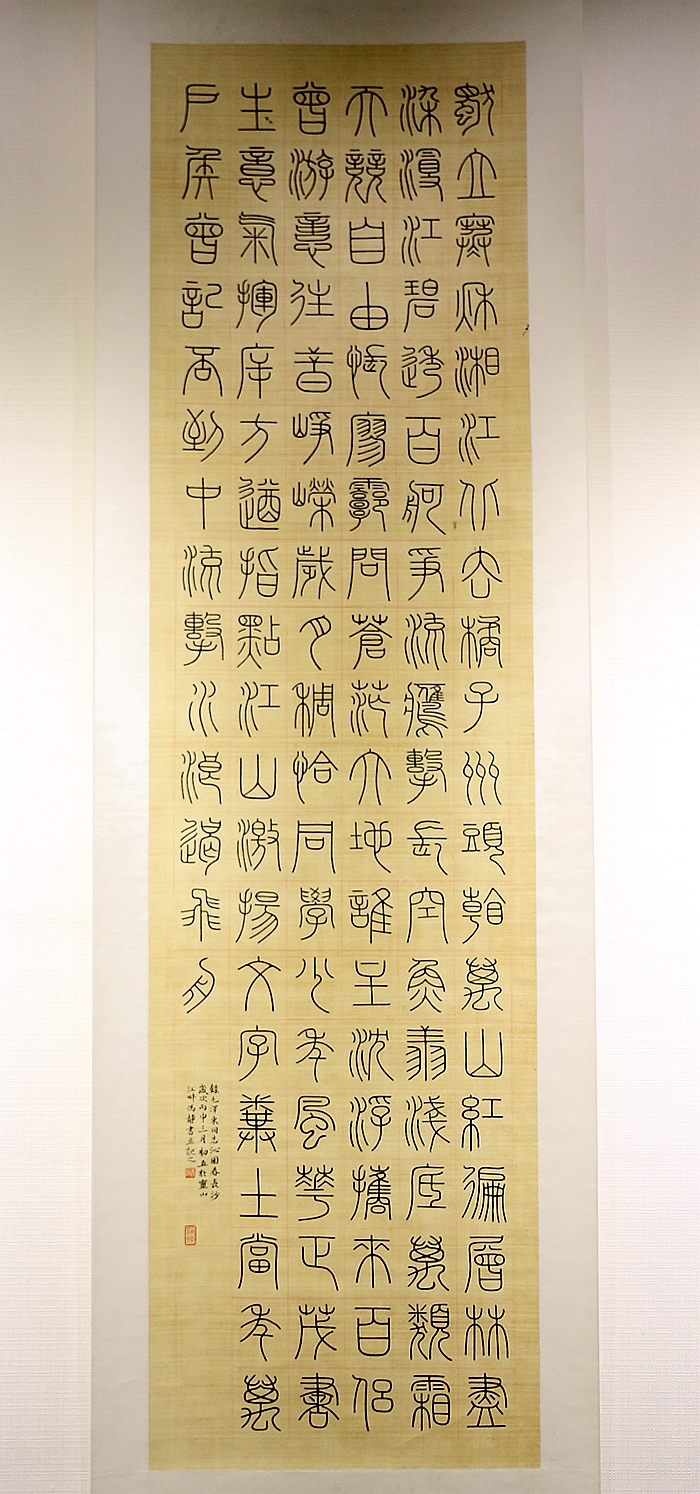 獨立寒秋湘江北去橘子洲頭看萬山紅徧層林盡
染漫江碧透百舸爭流鷹擊長空魚翔淺底萬類霜
天競自由悵廖霩問蒼茫大地誰主沈浮攜來百侶
曾游憶往昔崢嶸歲月稠恰同學少年風華正茂書
生意氣揮斥方遒指點江山激揚文字糞土當年萬
戶侯曾記否到中流擊水浪遏飛舟
錄毛澤東同志沁園春長沙
歲次丙申三月初五於靈山
江畔馮靜書並記之